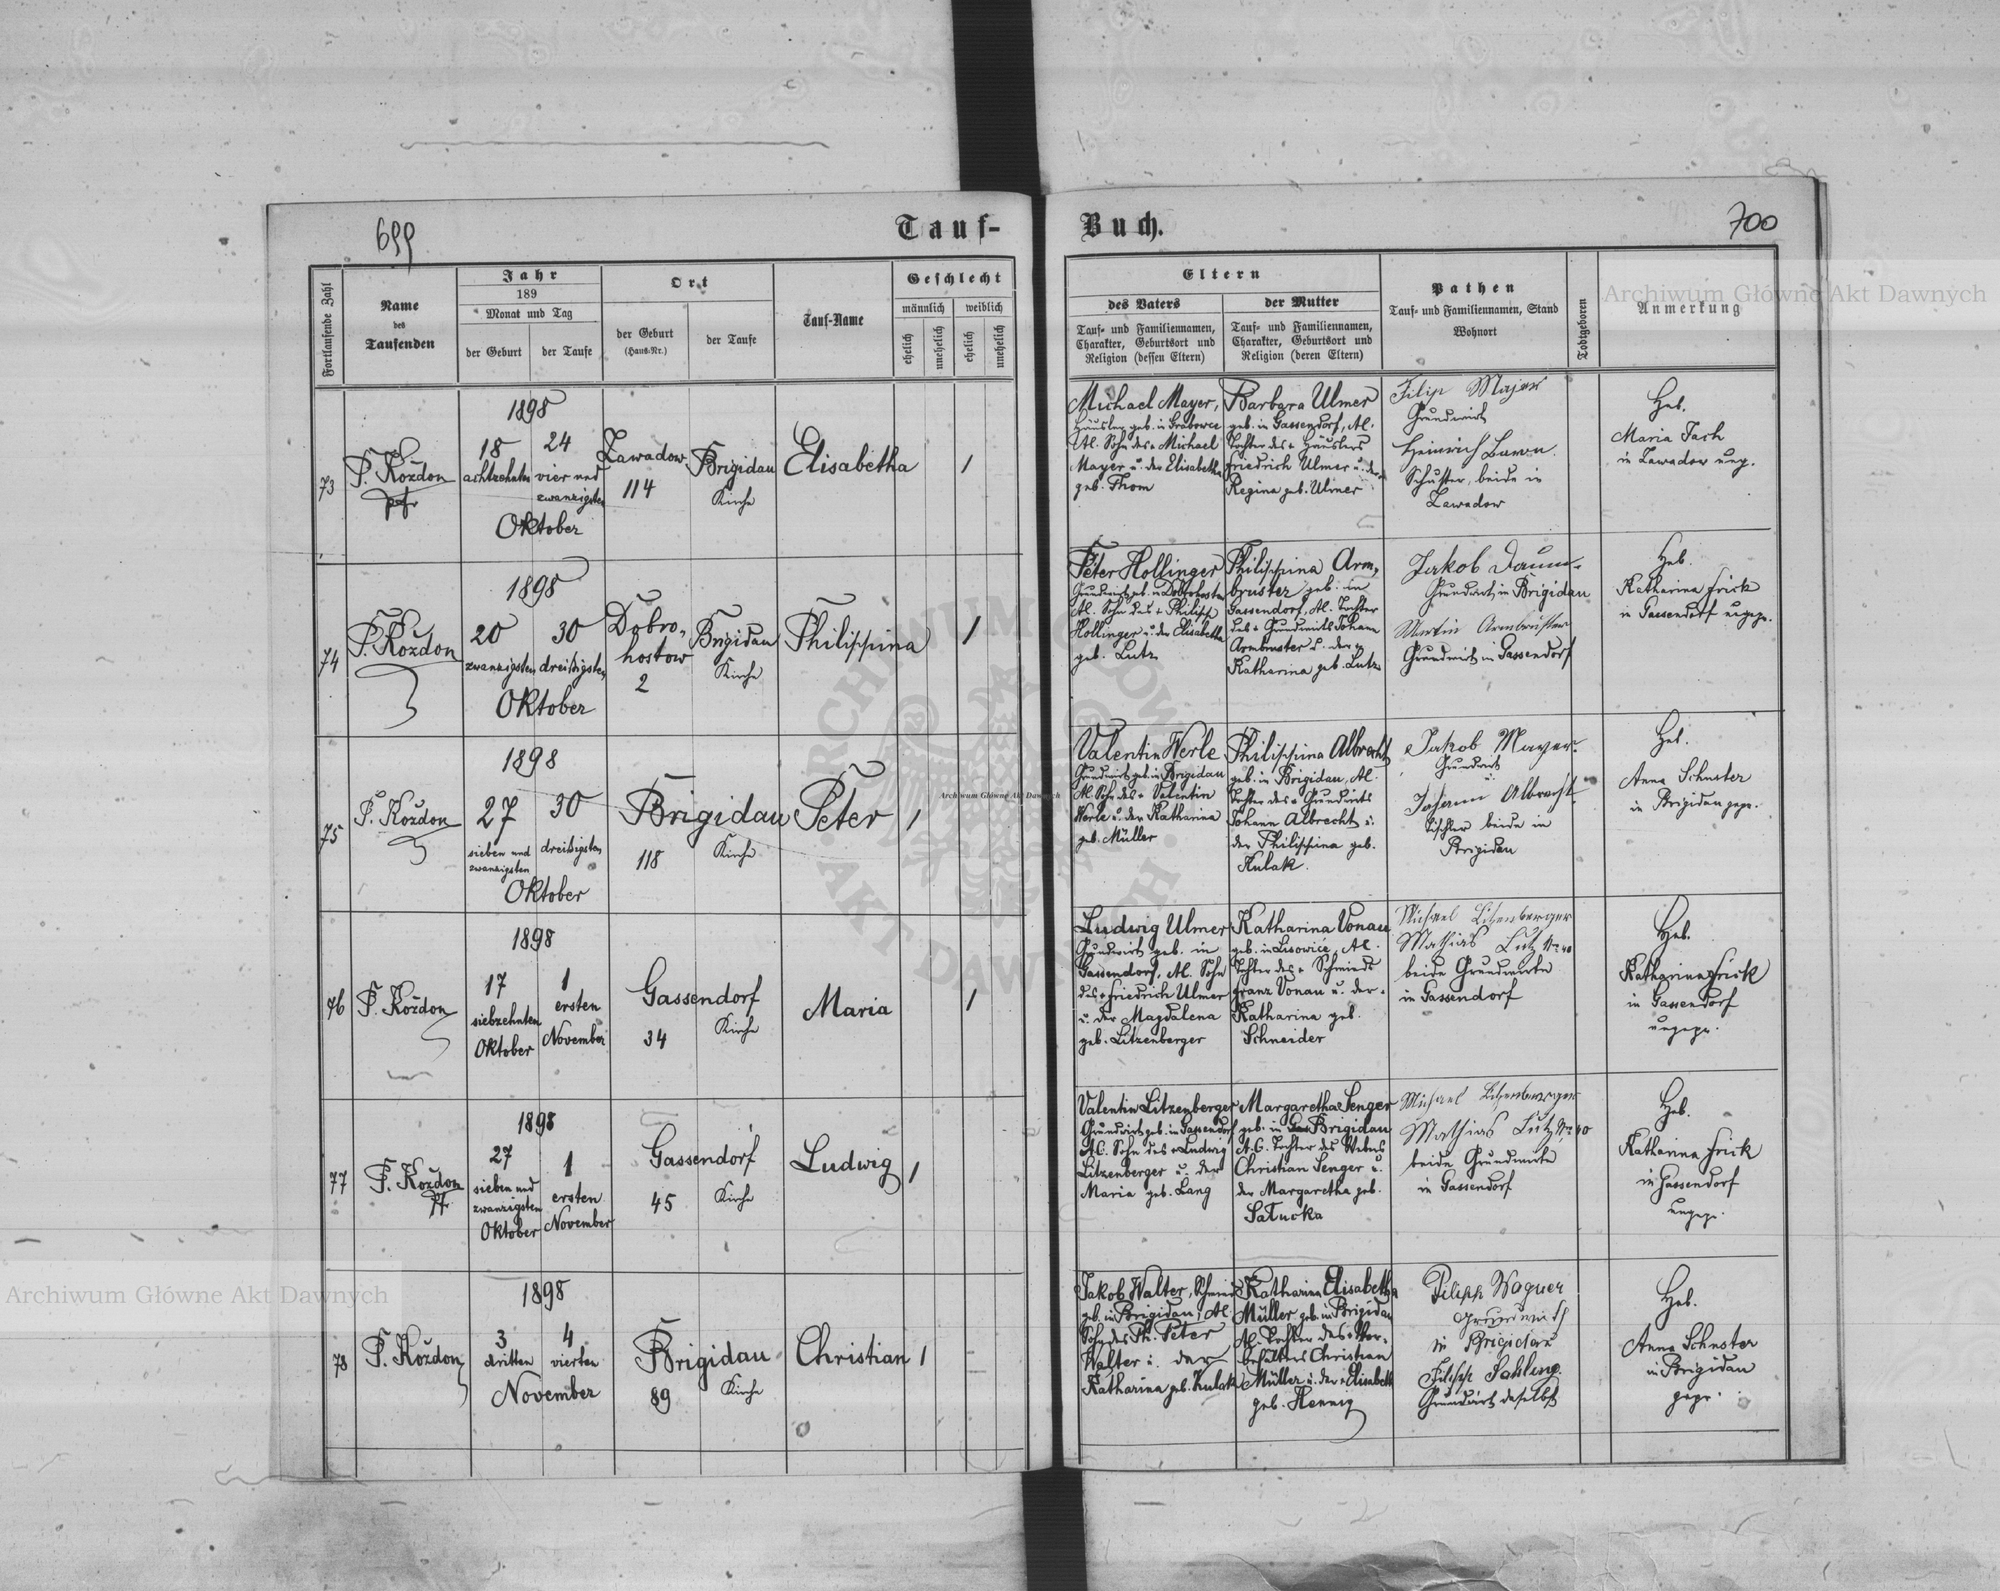 699
Tauf-
Buch.
700
Fortlaufende Zahl
Name
des
Taufenden
Jahr
189
Monat und Tag
der Geburt
der Taufe
Ort
der Geburt
(Haus-Nr.)
der Taufe
Tauf-Name
Geschlecht
männlich
weiblich
ehelich
unehelich
ehelich
unehelich
Eltern
des Vaters
Tauf- und Familiennamen,
Charakter, Geburtsort und
Religion (dessen Eltern)
der Mutter
Tauf- und Familiennamen,
Charakter, Geburtsort und
Religion (deren Eltern)
Pathen
Tauf- und Familiennamen, Stand
Wohnort
Todtgeboren
Anmerkung
73
P. Koždon
pfr
1898
18
achtzehnten
24
vier und
zwanzigsten
Oktober
Zawadow
114
Brigidau
Kirche
Elisabetha
1
Michael Mayer,
Häusler geb. in Grabowce
Al. Sohn des + Michael
Mayer u. der Elisabetha
geb. Thom
Barbara Ulmer
geb. in Gassendorf, Al.
Tochter des + Häuslers
Friedrich Ulmer u. der
Regina geb. Ulmer
Filip Majer
Grundwirt
Heinrich
Schuster, beide in
Zawadow
Heb.
Maria
in Zawadow ung.
74
P. Koždon
1898
20
zwanzigsten
30
dreißigsten
Oktober
Dobro-
hostow
2
Brigidau
Kirche
Philippina
1
Peter Hollinger
Grundwirt geb. in Dobrohostow
Al. Sohn des + Philipp
Hollinger u. der Elisabetha
geb. Lutz
Philippina Arm-
bruster geb. in
Gassendorf, Al. Tochter
des + Grundwirts Johann
Armbruster u. der
Katharina geb. Lutz
Jakob Daum
Grundwirt in Brigidau
Martin Armbruster
Grundwirt in Gassendorf
Heb.
Katharina Frick
in Gassendorf ungepr.
75
P. Koždon
1898
27
sieben und
zwanzigsten
30
dreißigsten
Oktober
Brigidau
118
Kirche
Peter
1
Valentin Werle
Grundwirt geb. in Brigidau
Al. Sohn des + Valentin
Werle u. der Katharina
geb. Müller
Philippina Albrecht
geb. in Brigidau, Al.
Tochter des + Grundwirts
Johann Albrecht u.
der Philippina geb.
Kulak.
Jakob Mayer
Grundwirt
u.
Johann Albrecht
Tischler beide in
Brigidau
Heb.
Anna Schuster
in Brigidau gepr.
76
P. Koždon
1898
17
siebzehnten
Oktober
1
ersten
November
Gassendorf
34
Kirche
Maria
1
Ludwig Ulmer
Grundwirt geb. in
Gassendorf, Al. Sohn
des + Friedrich Ulmer
u. der Magdalena
geb. Litzenberger
Katharina Vonau
geb. in Lisowice, Al.
Tochter des + Schmieds
Franz Vonau u. der
Katharina geb.
Schneider
Michael Litzenberger
Mathias Lutz Nr. 40
beide Grundwirte
in Gassendorf
Heb.
Katharina Frick
in Gassendorf
ungepr.
77
P. Koždon
Pf.
1898
27
sieben und
zwanzigsten
Oktober
1
ersten
November
Gassendorf
45
Kirche
Ludwig
1
Valentin Litzenberger
Grundwirt geb. in Gassendorf
A.C. Sohn des + Ludwig
Litzenberger u. der
Maria geb. Lang
Margaretha Senger
geb. in Brigidau
A.C. Tochter des Webers
Christian Senger u.
der Margaretha geb.
Sałucka
Michael Litzenberger
Mathias Lutz Nr. 40
beide Grundwirte
in Gassendorf
Heb.
Katharina Frick
in Gassendorf
ungepr.
78
P. Koždon
1898
3
dritten
4
vierten
November
Brigidau
89
Kirche
Christian
1
Jakob Walter, Schmied
geb. in Brigidau, Al.
Sohn des Ph. Peter
Walter u. der
Katharina geb. Kulak
Katharina Elisabetha
Müller geb. in Brigidau
Al. Tochter des + Vor-
behälters Christian
Müller u. der + Elisabeth
geb. Hennig
Filipp Wagner
Grundwirth
in Brigidau
Filipp
Grundwirt daselbst
Heb.
Anna Schuster
in Brigidau
gepr.
Archiwum Główne Akt Dawnych
Archiwum Główne Akt Dawnych
Archiwum Główne Akt Dawnych
ARCHIWUM GŁÓWNE AKT DAWNYCH